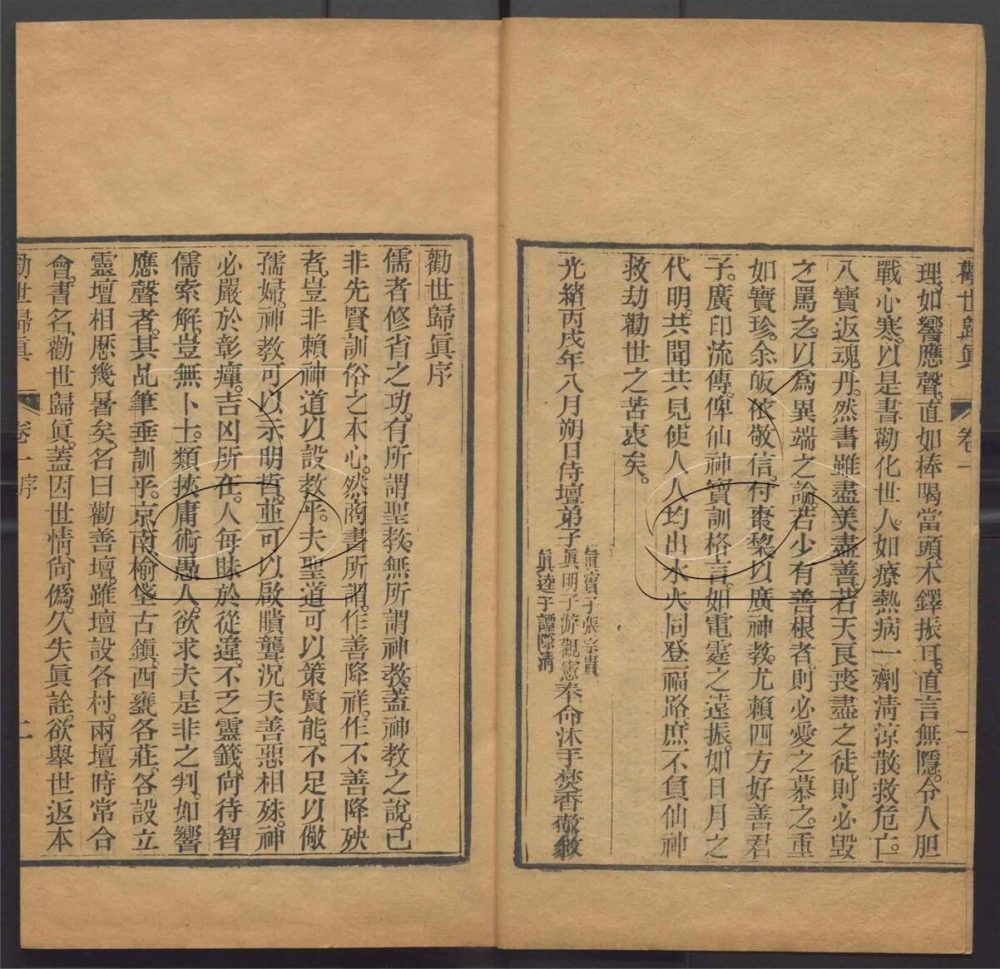 勸世歸眞 卷一
理。如響應聲。直如棒喝當頭。木鐸振耳。直言無隱。令人胆
戰心寒。以是書勸化世人。如療熱病一劑淸涼散。救危亡。
八寶返魂丹。然書雖盡美盡善。若天良喪盡之徒。則必毀
之罵之。以爲異端之論。若少有善根者。則必愛之慕之。重
如寶珍。余皈依敬信。付棗梨。以廣神教。尤賴四方好善君
子。廣印流傳。俾仙神寶訓格言。如電霆之遠振。如日月之
代明。共聞共見。使人人均出水火。同登福路。庶不負仙神
救劫勸世之苦衷矣。
光緒丙戌年八月朔日侍壇弟子
眞寶子張
眞明子游觀憲
眞達子譚際淸
奉命沐手焚香敬敘
勸世歸眞序
儒者修省之功。有所謂聖教。無所謂神教。蓋神教之說。已
非先賢訓俗之本心。然商書所謂。作善降祥。作不善降殃
者。豈非賴神道以設教乎。夫聖道可以策賢能。不足以儆
孺婦。神教可以示明哲。並可以啟瞶聾。況夫善惡相殊。神
必嚴於彰癉。吉凶所在。人每昧於從違。不乏靈籤。尙待智
儒索解。豈無卜士。類挾庸術愚人。欲求夫是非之判。如響
應聲者。其乩筆垂訓乎。京南榆垡古鎭。西甕各莊。各設立
靈壇。相歷幾暑矣。名曰勸善壇。雖壇設各村。兩壇時常合
會。書名勸世歸眞。蓋因世情尙僞。久失眞詮。欲舉世返本
勸世歸眞 卷一序 二